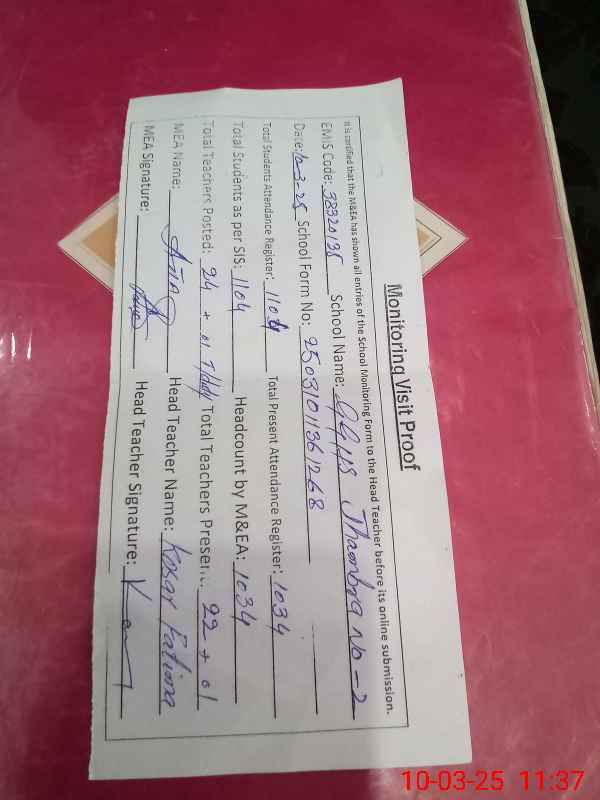 Monitoring Visit Proof
It is certified that the M&EA has shown all entries of the School Monitoring Form to the Head Teacher before its online submission.
EMIS Code: 38320135 School Name: GGHS Jhambra No-2
Date: 10-3-25 School Form No: 25031011361268
Total Students Attendance Register: 1104 Total Present Attendance Register: 1034
Total Students as per SIS: 1104 Headcount by M&EA: 1034
Total Teachers Posted: 24 + 01 Total Teachers Present: 22 + 01
MEA Name: Head Teacher Name: Kosar Fatima
MEA Signature: Head Teacher Signature:
10-03-25 11:37